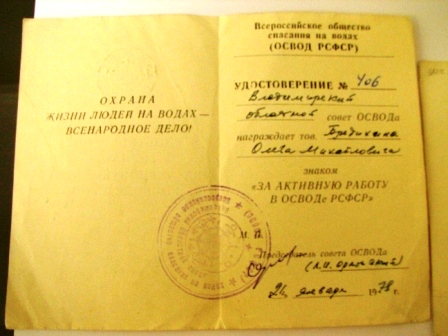 ОХРАНА
ЖИЗНИ ЛЮДЕЙ НА ВОДАХ —
ВСЕНАРОДНОЕ ДЕЛО!
Всероссийское общество
спасания на водах
(ОСВОД РСФСР)
УДОСТОВЕРЕНИЕ № 406
Владимирский
областной совет ОСВОДа
награждает тов.
Олега Михайловича
знаком
«ЗА АКТИВНУЮ РАБОТУ
В ОСВОДе РСФСР»
М. П.
Председатель совета ОСВОДа
января 1978 г.